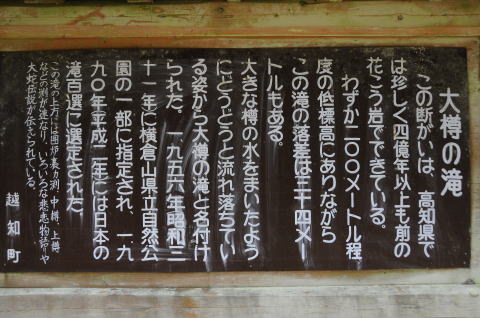 大樽の滝
この断がいは、高知県で
は珍しく四億年以上も前の
花こう岩でできている。
わずか二〇〇メートル程
度の低標高にありながら
この滝の落差は三十四メー
トルもある。
大きな樽の水をまいたよう
にどうどうと流れ落ちてい
る姿から大樽の滝と名付け
られた。一九五六年昭和三
十一年に横倉山県立自然公
園の一部に指定され、一九
九〇年平成二年には日本の
滝百選に選定された
この滝の上方には囲炉裏ヵ渕、中樽、上樽
などの渕が連なり、いろいろな悲恋物語りや
大蛇伝説が伝えられている。
越知町